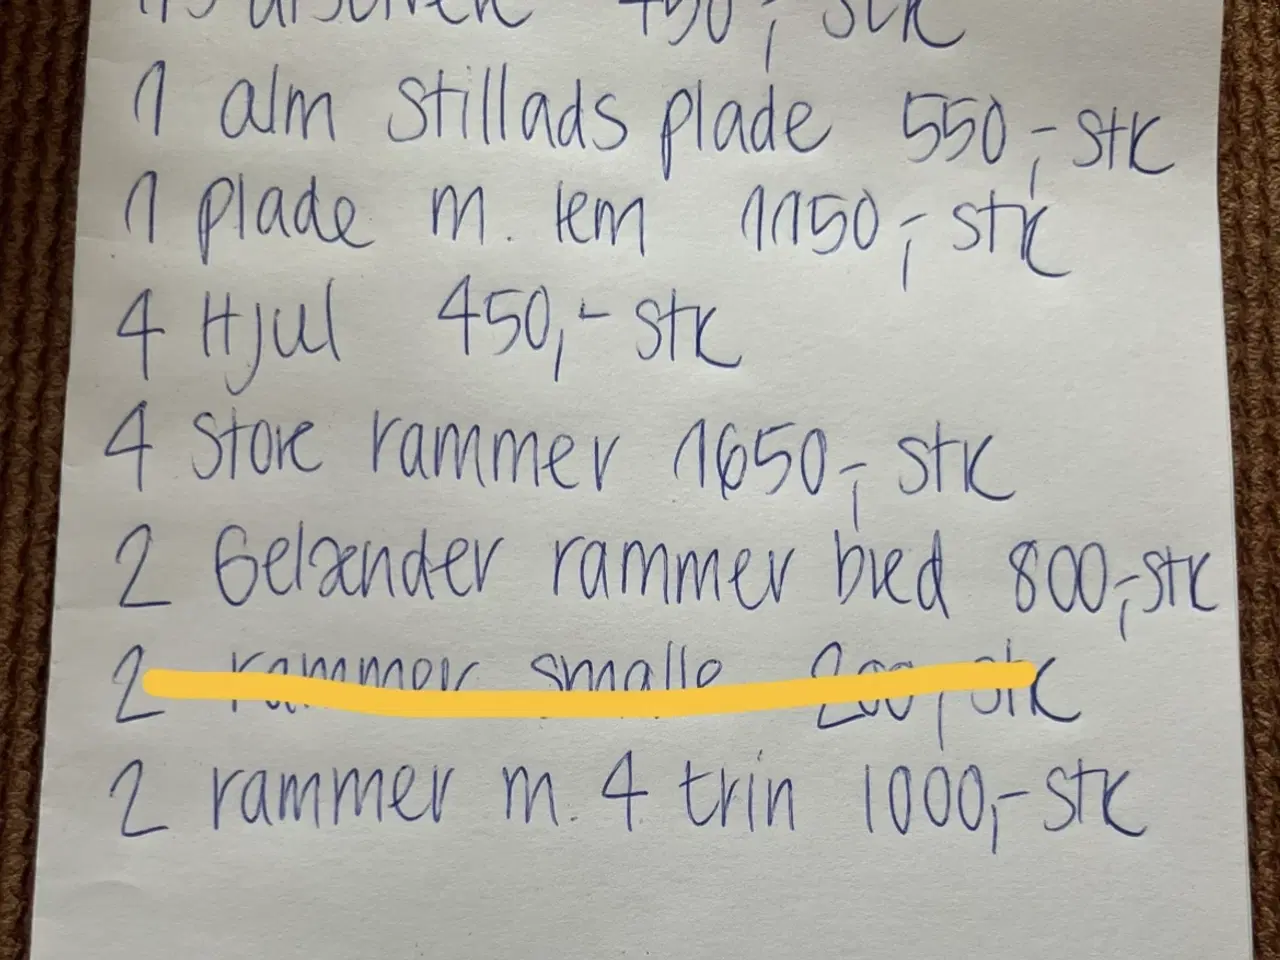 450,- stk
1 alm stillads plade 550,- stk
1 plade m. lem 1150,- stk
4 Hjul 450,- stk
4 store rammer 1650,- stk
2 Gelænder rammer bred 800,- stk
2 rammer smalle 200,- stk
2 rammer m. 4 trin 1000,- stk